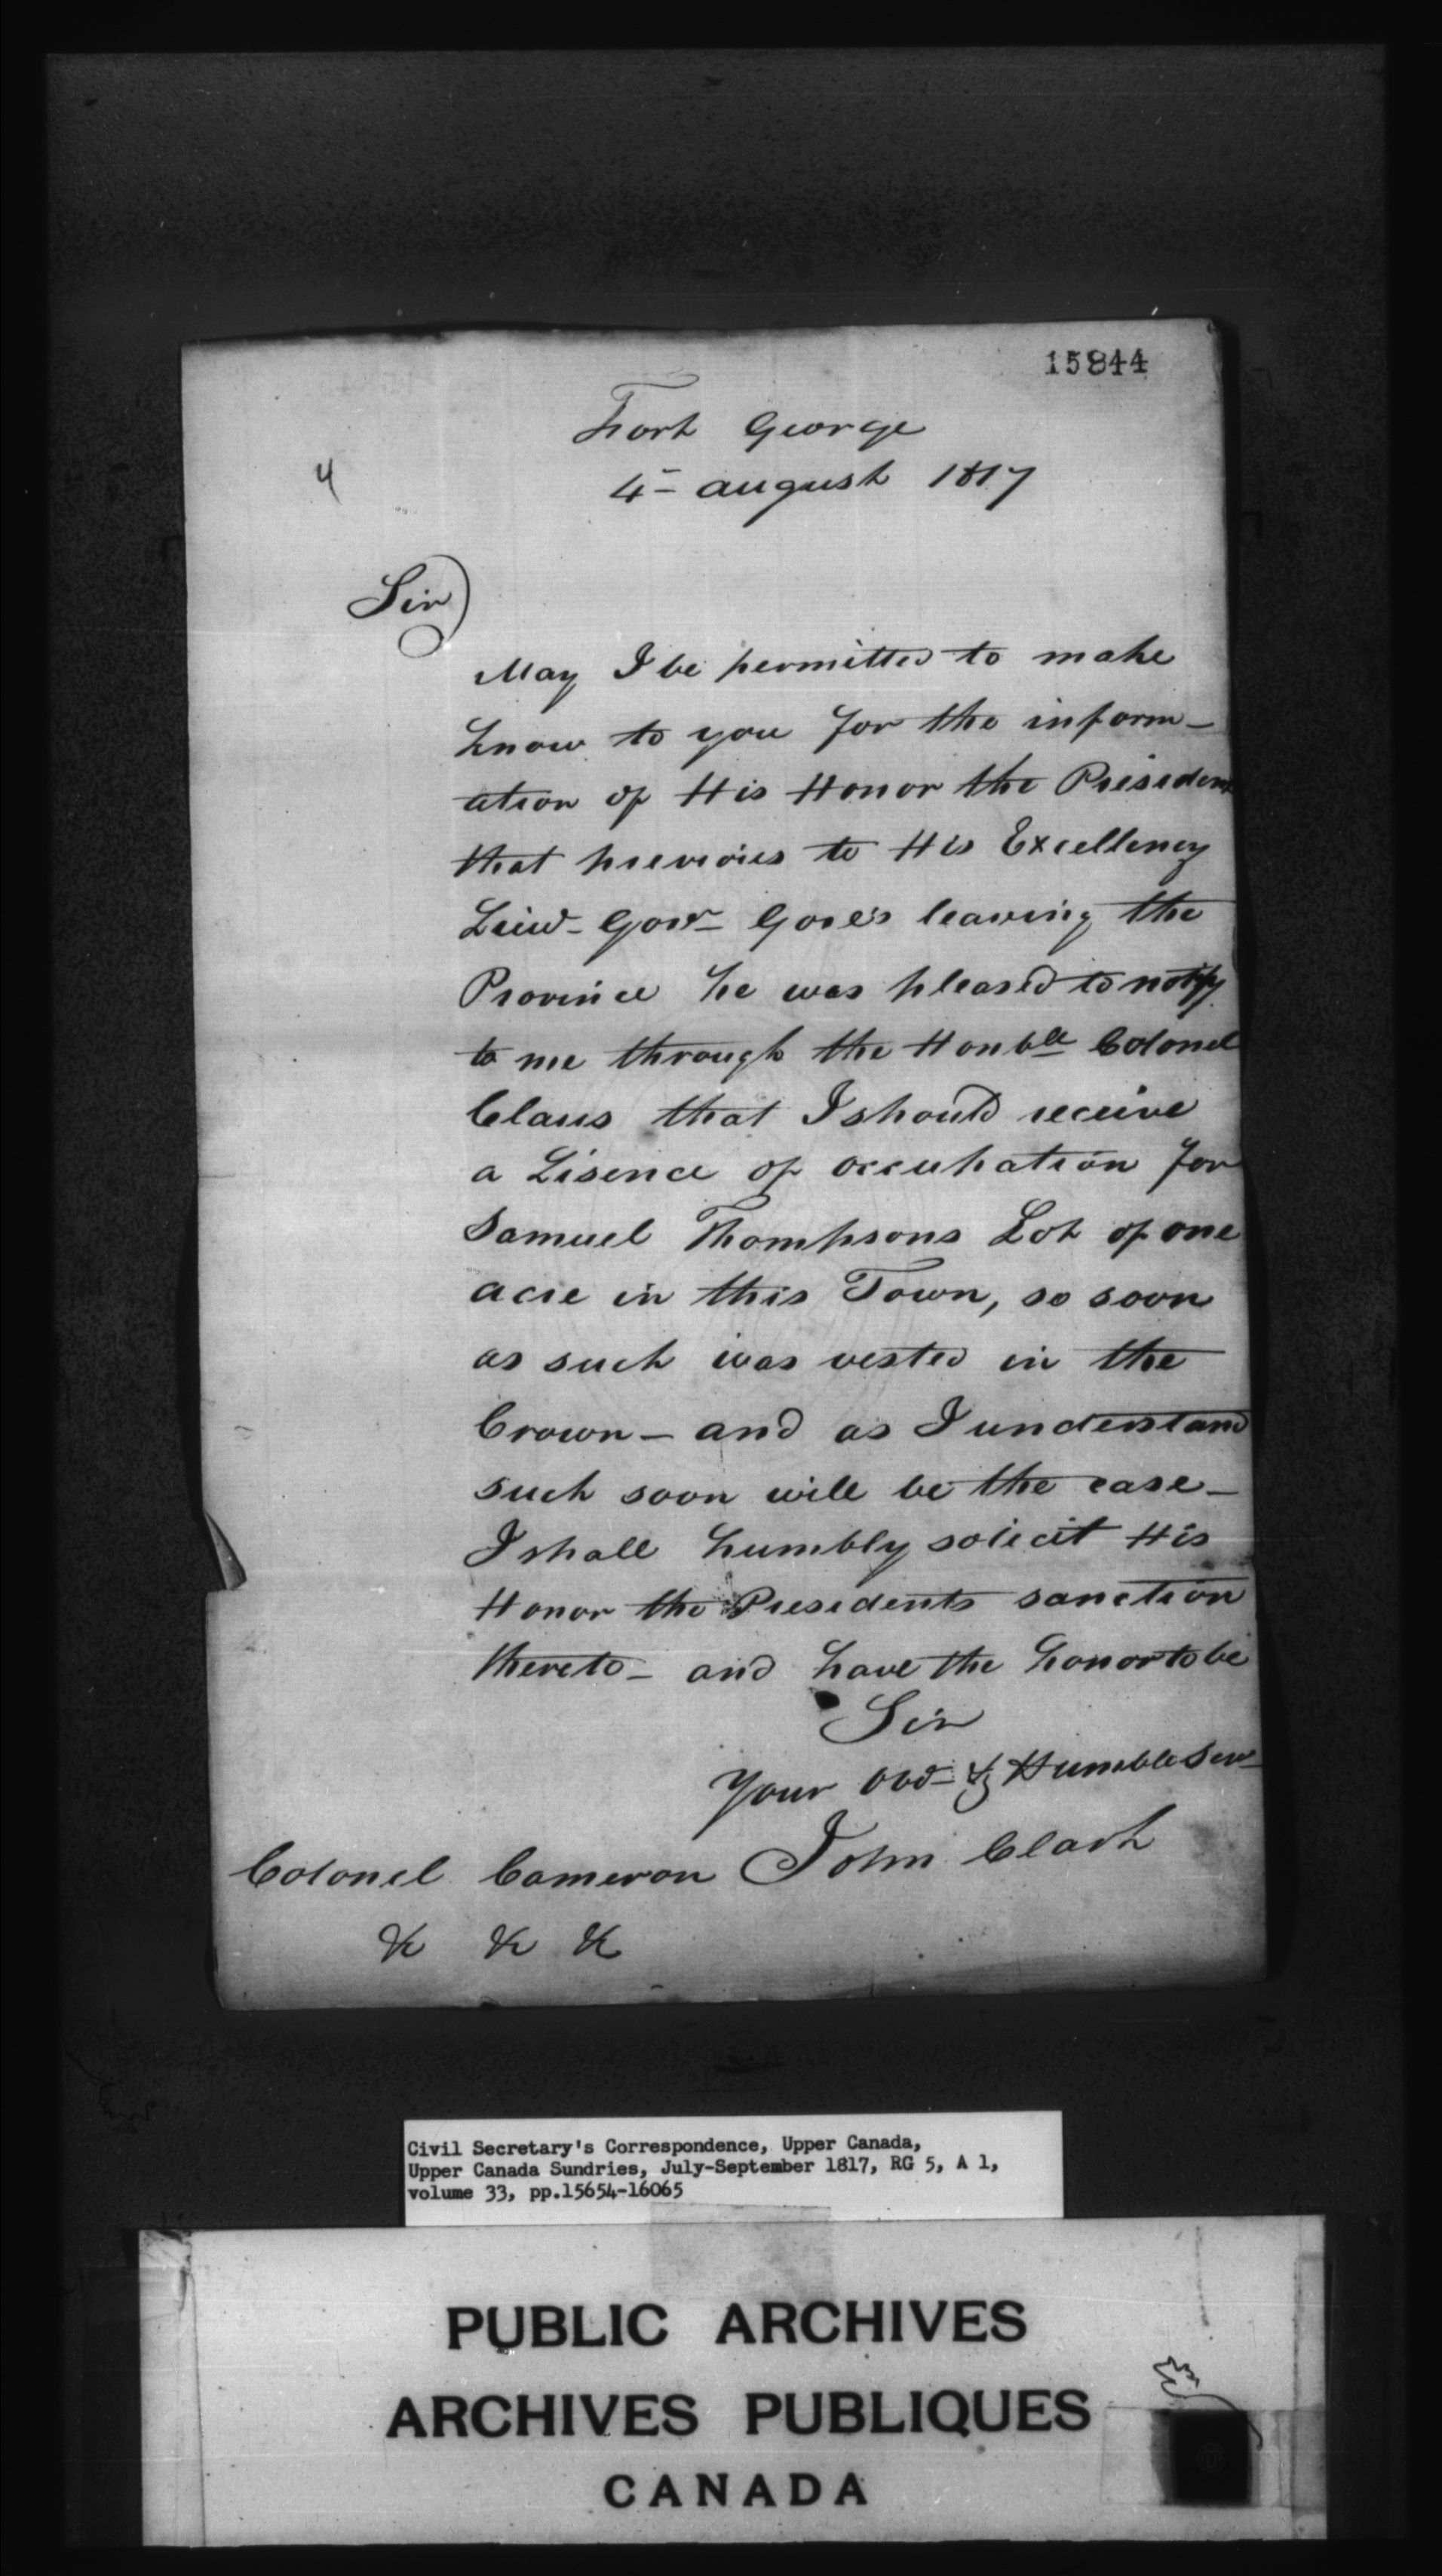 15844
Fort George
4 4- august 1817
Sir
May I be permitted to make
know to you for the inform-
ation of His Honor the President
that previous to His Excellency
Lieut- Govr- Gore's leaving the
Province he was pleased to notify
to me through the Honble Colonel
Claus that I should receive
a Lisence of occupation for
Samuel Thompsons Lot of one
acre in this Town, so soon
as such was vested in the
Crown - and as I understand
such soon will be the case -
I shall humbly solicit His
Honor the Presidents sanction
thereto - and have the honor to be
Sir
Your Obd- & Humble Serv-
John Clark
Colonel Cameron
&c &c &c
Civil Secretary's Correspondence, Upper Canada,
Upper Canada Sundries, July-September 1817, RG 5, A 1,
volume 33, pp.15654-16065
PUBLIC ARCHIVES
ARCHIVES PUBLIQUES
CANADA